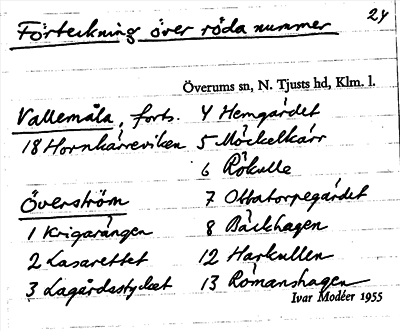 24
Förteckning över röda nummer
Överums sn, N. Tjusts hd, Klm. l.
Vallemåla, forts.
18 Hornkärreviken
Överström
1 Krigarängen
2 Lasarettet
3 Lagårdsstycket
4 Hemgärdet
5 Möckelkärr
6 Rökulle
7 Ottatorpegärdet
8 Bäckhagen
12 Harkullen
13 Römanshagen
Ivar Modéer 1955